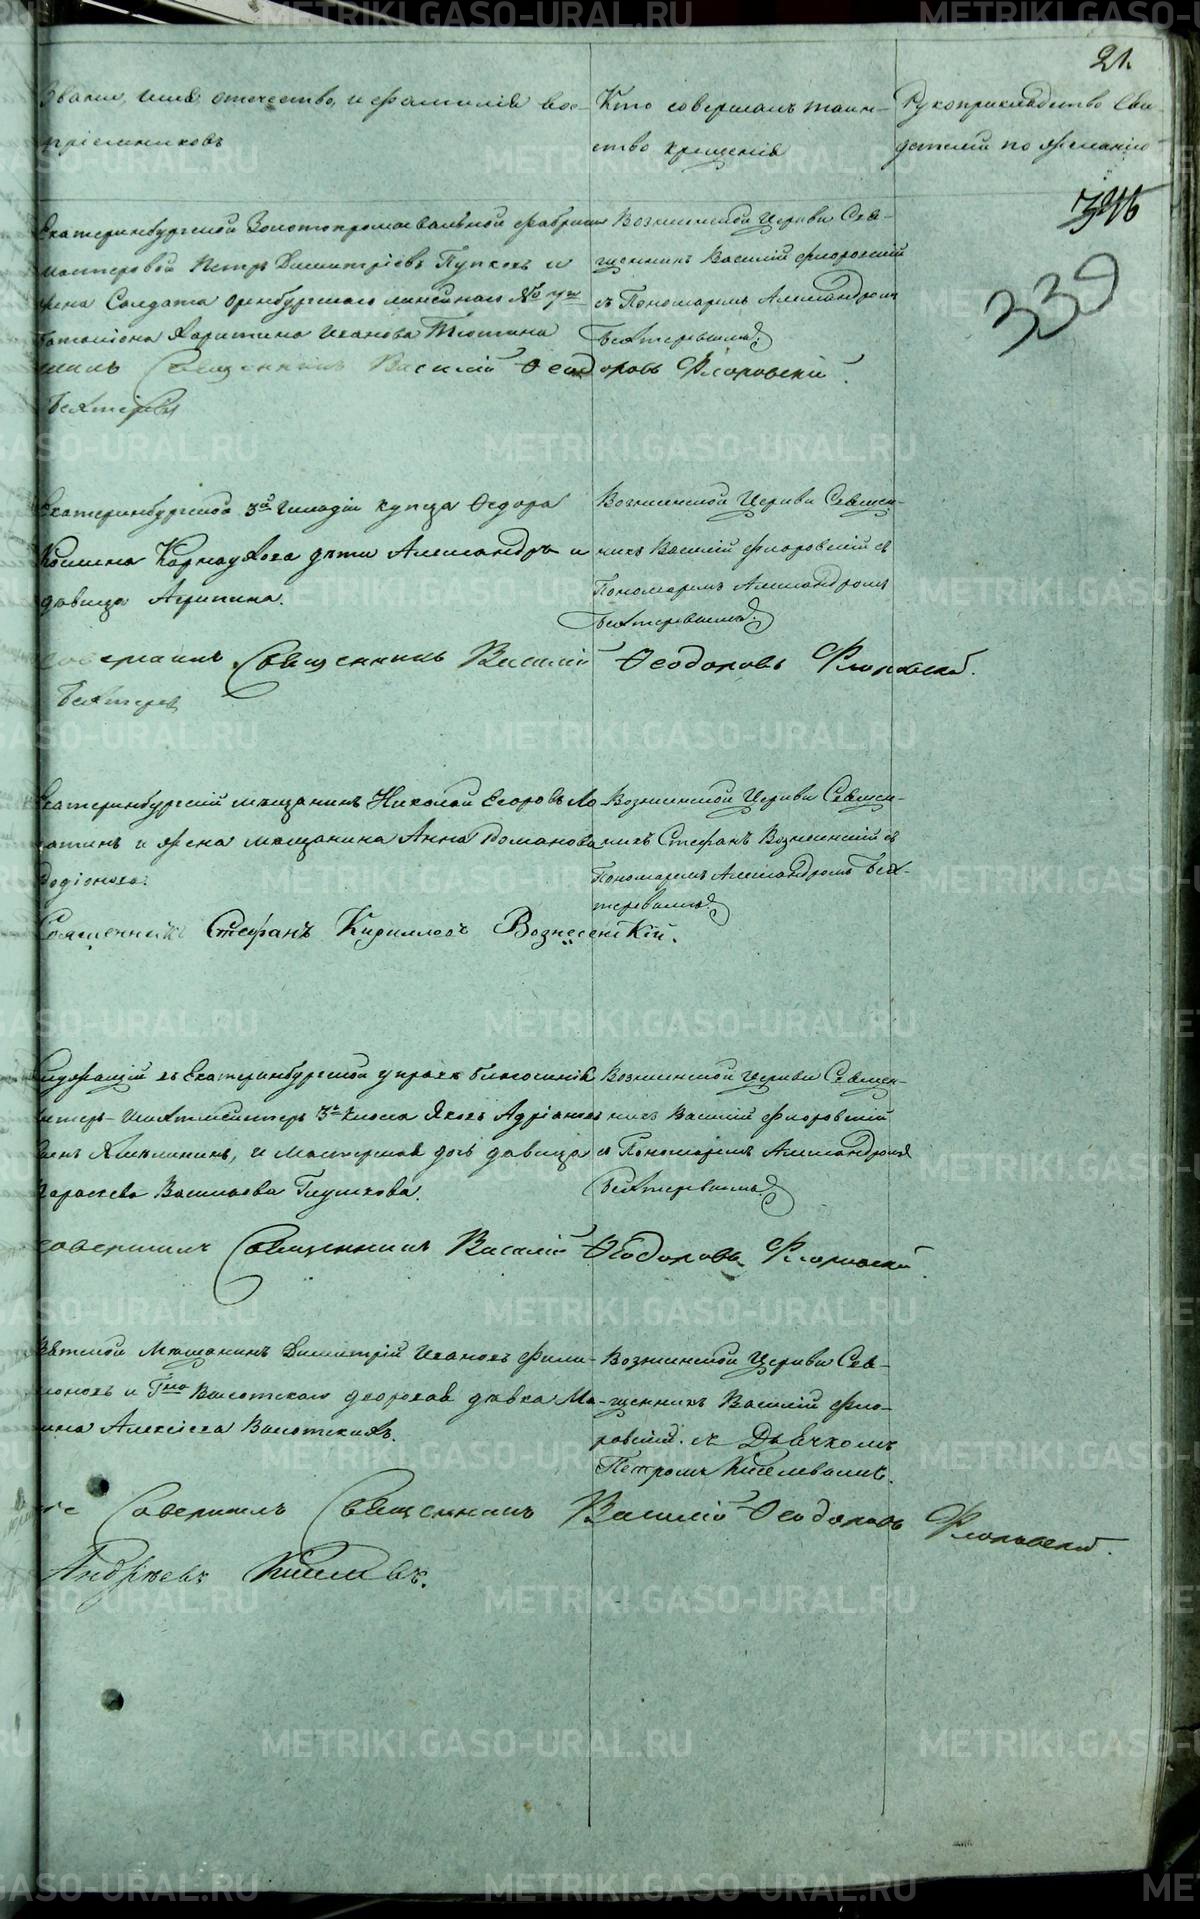 21.
Званіе, имя, отечество, и фамилія вос-
пріемниковъ
Кто совершалъ таин-
ство крещенія
Рукоприкладство сви-
детелей по желанію
339
Екатеринбургской Золотопромывальной фабрики
мастеровой Петръ Димитріевъ Пупковъ и
жена Солдата Оренбургскаго линейнаго №
баталіона Харитина Иванова Тютина
Вознесенской Церкви Свя-
щенникъ Василій Флоровскій
съ Пономаремъ Александромъ
Бехтеревымъ.
Священникъ Василій Феодоровъ Флоровскій.
Бехтеревъ
Екатеринбургскаго 3й гильдіи купца Федора
Козмина Карнаухова дети Александръ и
девица Агрипина.
Вознесенской Церкви Священ-
никъ Василій Флоровскій съ
Пономаремъ Александромъ
Бехтеревымъ.
совершилъ Священникъ Василій Феодоровъ Флоровскій.
Бехтеревъ
Екатеринбургскій мещанинъ Николай Егоровъ Ло-
патинъ и жена мещанина Анна Романова
Родіонова.
Вознесенской Церкви Священ-
никъ Стефанъ Вознесенскій съ
Пономаремъ Александромъ Бех-
теревымъ.
Священникъ Стефанъ Кирилловъ Вознесенскій.
Служащій въ Екатеринбургской управе
3го класа Яковъ Адріановъ
и мастерская дочь девица
Параскева Васильева Глушкова.
Вознесенской Церкви Священ-
никъ Василій Флоровскій
съ Пономаремъ Александромъ
Бехтеревымъ.
совершилъ Священникъ Василій Феодоровъ Флоровскій.
Вятской Мещанинъ Димитрій Ивановъ Фили-
моновъ и Гна Высотскаго дворовая девка Ма-
рина Алексеева Высотскихъ.
Вознесенской Церкви Свя-
щенникъ Василій Фло-
ровскій съ Дьячкомъ
Петромъ Киселевымъ.
Совершилъ Священникъ Василій Феодоровъ Флоровскій.
Андреевъ Киселевъ.
METRIKI.GASO-URAL.RU